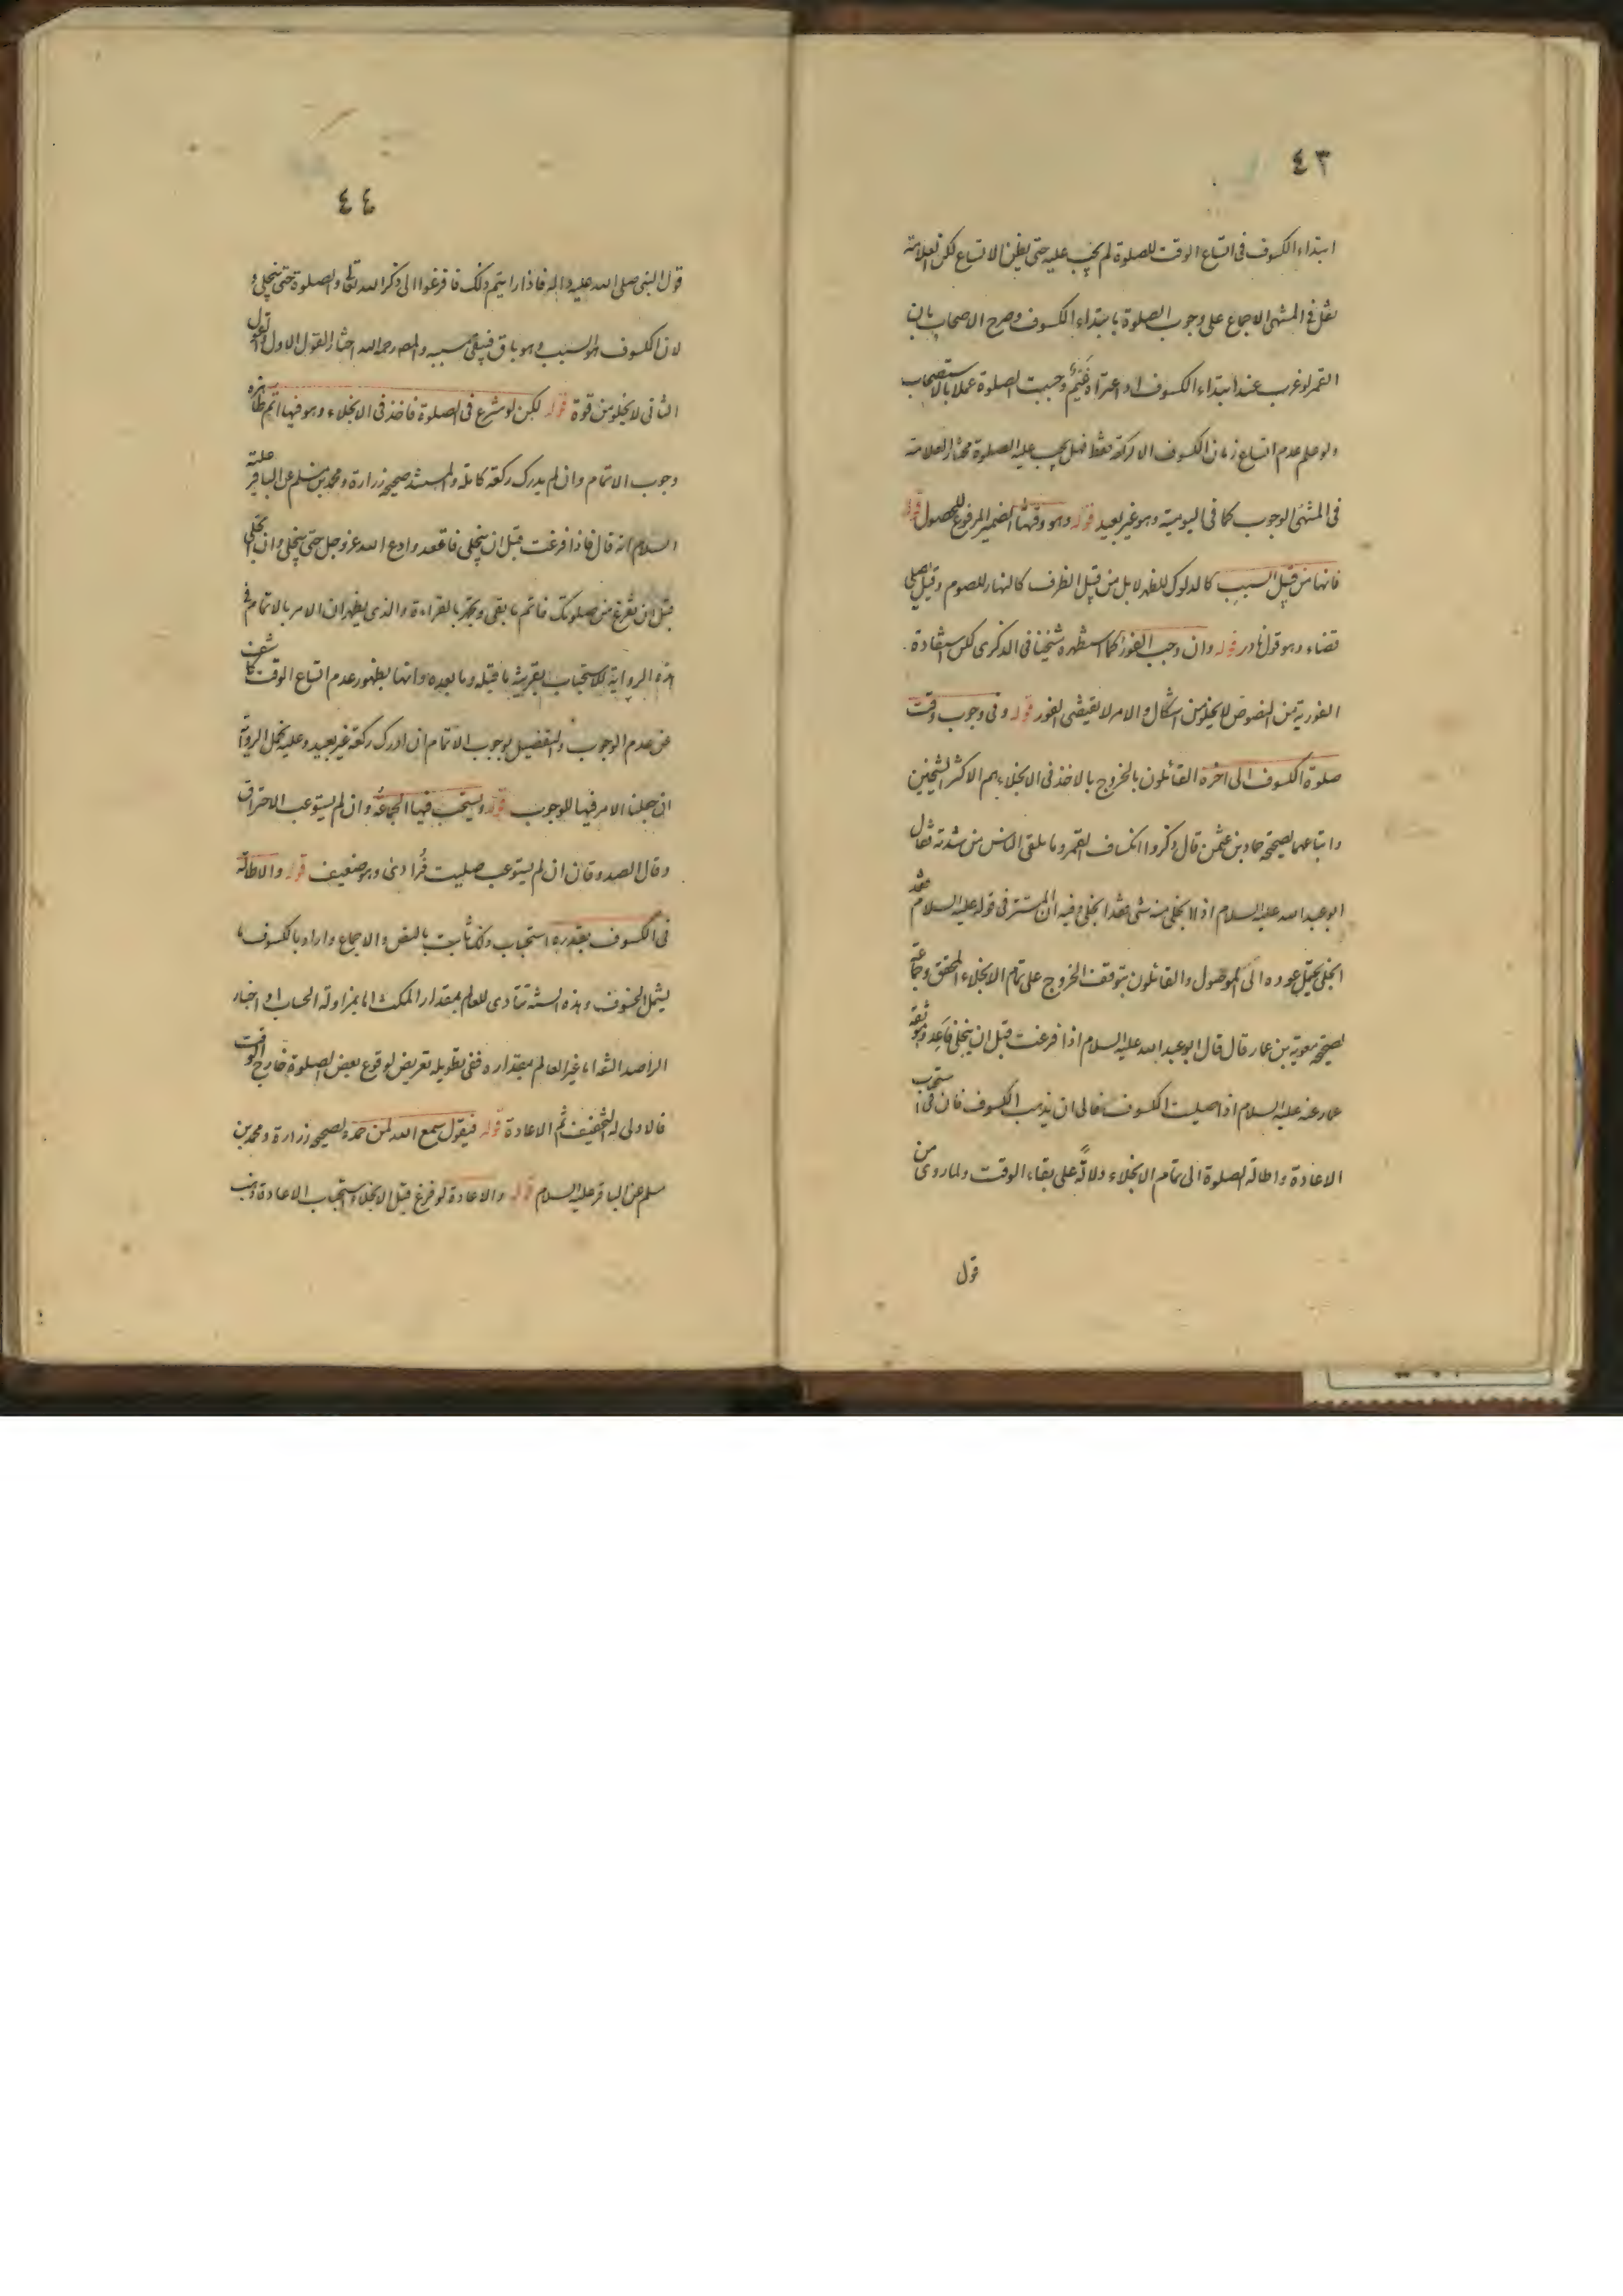 ٤٣
ابتداء الكسوف فى اتساع الوقت للصلوة لم يجب عليه حتى يظن الاتساع لكن العلامة
نقل فى المنتهى الاجماع على وجوب الصلوة بابتداء الكسوف وصرح الاصحاب بان
القمر لو غرب عند ابتداء الكسوف او اعتراه غيم وجبت الصلوة عملا بالاستصحاب
ولو علم عدم اتساع زمان الكسوف الا لركعة فقط فهل يجب عليه الصلوة مختار العلامة
فى المنتهى الوجوب كما فى اليومية وهو غير بعيد قوله وهو وقتها الضمير المرفوع للحصول قوله
فانها من قبيل السبب كالدلوك للظهر لا بل من قبيل الظرف كالنهار للصوم وقيل يصلى
قضاء وهو قول نادر قوله وان وجب الفور كما استظهره شيخنا فى الذكرى لكن استفادة
الفورية من النصوص لا يخلو من اشكال والامر لا يقتضى الفور قوله وفى وجوب وقت
صلوة الكسوف الى اخره القائلون بالخروج بالاخذ فى الانجلاء هم الاكثر الشيخين
واتباعهما لصحيحة حماد بن عثمن قال ذكروا انكساف القمر وما يلقى الناس من شدته فقال
ابو عبد الله عليه السلام اذ الانجلى منه شى فقد انجلى وفيه ان المستتر فى قوله عليه السلام فقد
انجلى يحتمل عوده الى الموصول والقائلون بتوقف الخروج على تمام الانجلاء المحقق وجماعة
لصحيحة معوية بن عمار قال قال ابو عبد الله عليه السلام اذا فرغت قبل ان ينجلى فاعد وموثقة
عمار عنه عليه السلام اذا صليت الكسوف فالى ان يذهب الكسوف فان فى استحباب
الاعادة واطالة الصلوة الى تمام الانجلاء دلالة على بقاء الوقت ولما روى من
قول
٤٤
قول النبى صلى الله عليه واله فاذا رايتم ذلك فافزعوا الى ذكر الله تعالى والصلوة حتى ينجلى و
لان الكسوف هو السبب وهو باق فيبقى مسببه والمصر رحمه الله اختار القول الاول والقول
الثانى لا يخلو من قوة قوله لكن لو شرع فى الصلوة فاخذ فى الانجلاء وهو فيها اتم ظاهره
وجوب الاتمام وان لم يدرك ركعة كاملة والمستند صحيحة زرارة ومحمد بن مسلم عن الباقر عليه
السلام انه قال فاذا فرغت قبل ان ينجلى فاقعد وادع الله عز وجل حتى ينجلى وان انجلى
قبل ان تفرغ من صلوتك فاتم ما بقى وتجهر بالقراءة والذى يظهر ان الامر بالاتمام فى
هذه الرواية للاستحباب بقرينة ما قبله وما بعده وانها بظهور عدم اتساع الوقت كاشف
عن عدم الوجوب والتفصيل بوجوب الاتمام ان ادرك ركعة غير بعيد وعليه يحمل الرواية
ان جعلنا الامر فيها للوجوب قوله ويستحب فيها الجماعة وان لم يستوعب الاحتراق
وقال الصدوقان ان لم يستوعب صليت فرادى وهو ضعيف قوله والاطالة
فى الكسوف بقدره استحباب ذلك ثابت بالنص والاجماع واراد بالكسوف ما
يشمل الخسوف وهذه السنة تتادى للعالم بمقدار المكث اما بمزاولة الحساب او اخبار
الراصد الثقة اما غير العالم بمقداره ففى تطويله تعريض لوقوع بعض الصلوة خارج الوقت
فالاولى له التخفيف ثم الاعادة قوله فيقول سمع الله لمن حمده لصحيحة زرارة ومحمد بن
مسلم عن الباقر عليه السلام قوله والاعادة لو فرغ قبل الانجلاء استحباب الاعادة مذهب